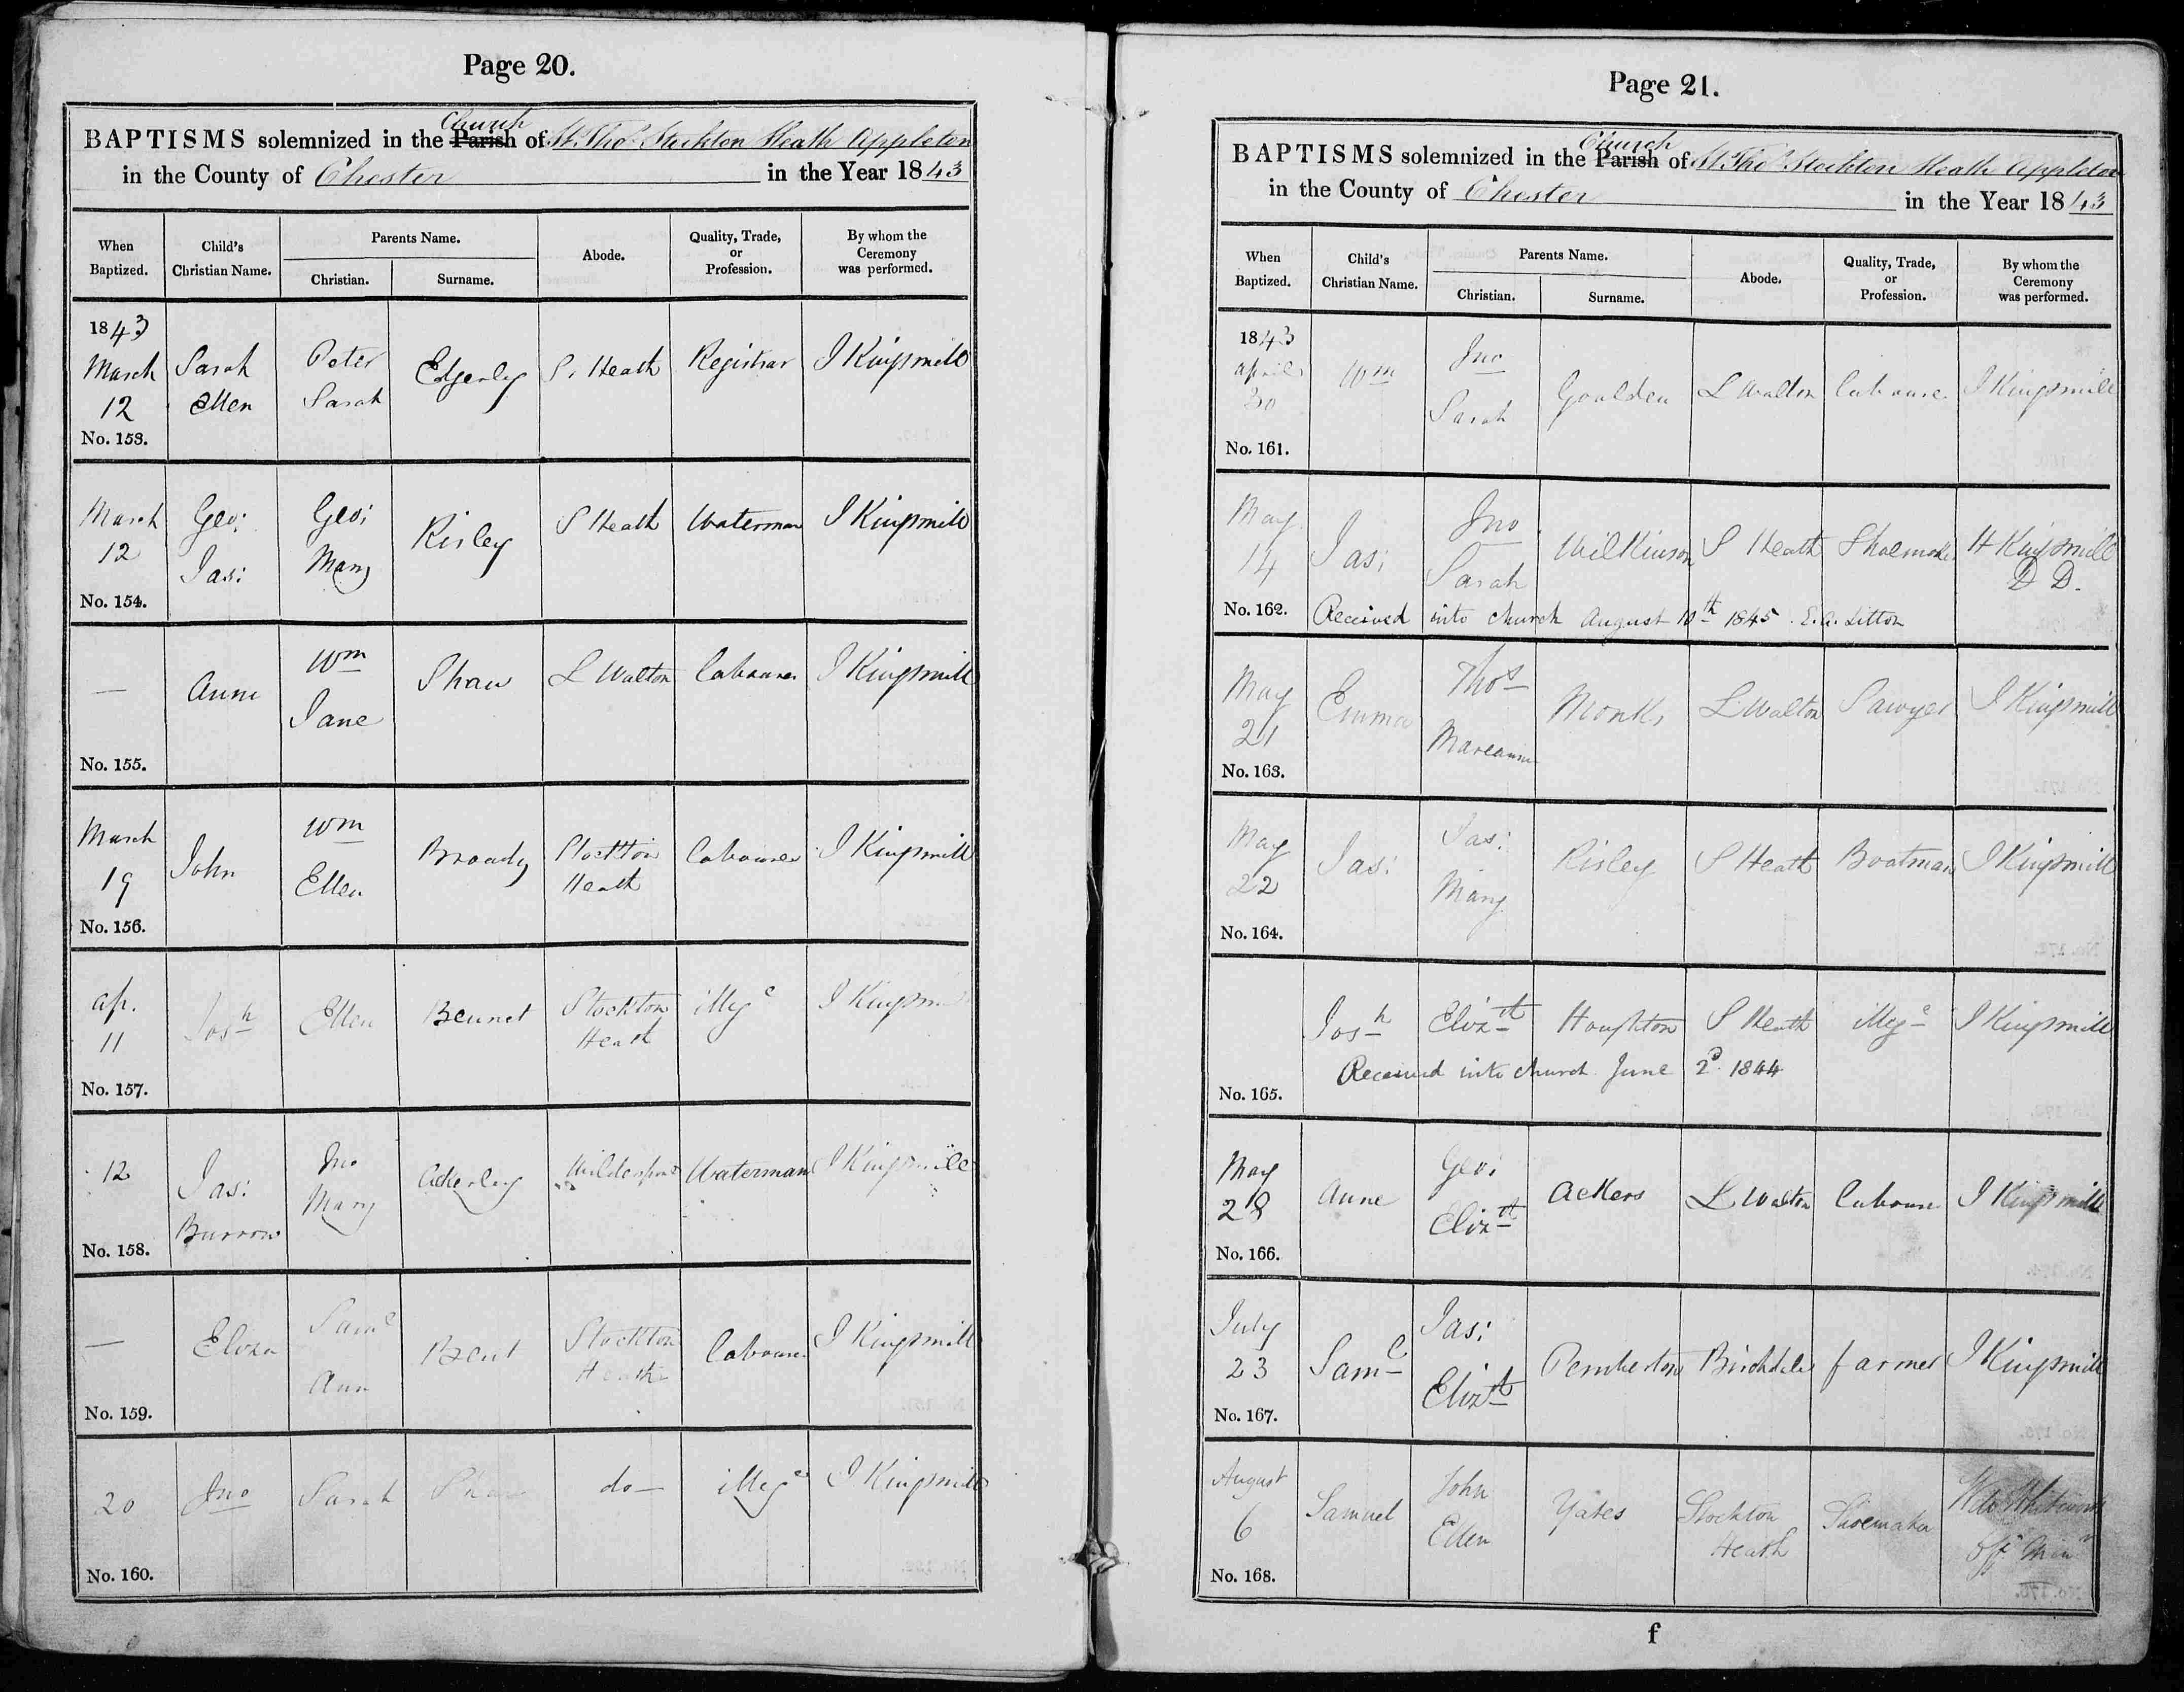 Page 20.
BAPTISMS solemnized in the Parish Church of St. Thos Stockton Heath Appleton
in the County of Chester in the Year 1843
When Baptized. Child's Christian Name. Parents Name. Christian. Surname. Abode. Quality, Trade, or Profession. By whom the Ceremony was performed.
1843
March 12 Sarah Ellen Peter Sarah Edgerley S. Heath Registrar I Kingsmill
No. 153.
March 12 Geo: Jas: Geo: Mary Risley S Heath Waterman I Kingsmill
No. 154.
— Anne Wm Jane Shaw L Walton Labourer I Kingsmill
No. 155.
March 19 John Wm Ellen Broady Stockton Heath Labourer I Kingsmill
No. 156.
Ap. 11 Josh Ellen Bennet Stockton Heath illege I Kingsmill
No. 157.
12 Jas: Burrow Jno Mary Ackerley Waterman I Kingsmill
No. 158.
— Eliza Saml Ann Brent Stockton Heath Labourer I Kingsmill
No. 159.
20 Jno Sarah do— illege I Kingsmill
No. 160.
Page 21.
BAPTISMS solemnized in the Parish Church of St. Thos Stockton Heath Appleton
in the County of Chester in the Year 1843
When Baptized. Child's Christian Name. Parents Name. Christian. Surname. Abode. Quality, Trade, or Profession. By whom the Ceremony was performed.
1843
April 30 Wm Jno Sarah Goulden L Walton Labourer I Kingsmill
No. 161.
May 14 Jas: Jno Sarah Wilkinson S Heath Shoemaker H Kingsmill D D.
No. 162. Received into church August 10th 1845. E.A. Litton
May 21 Emma Thos Mareanne Monks L Walton Sawyer I Kingsmill
No. 163.
May 22 Jas: Jas: Mary Risley S Heath Boatman I Kingsmill
No. 164.
Josh Elizth Houghton S Heath illege I Kingsmill
Received into church June 2d 1844
No. 165.
May 28 Anne Geo: Elizth Ackers L Walton Labourer I Kingsmill
No. 166.
July 23 Saml Jas: Elizth Pemberton Birchdale farmer I Kingsmill
No. 167.
August 6 Samuel John Ellen Yates Stockton Heath Shoemaker Whitworth Offg Minr
No. 168.
f